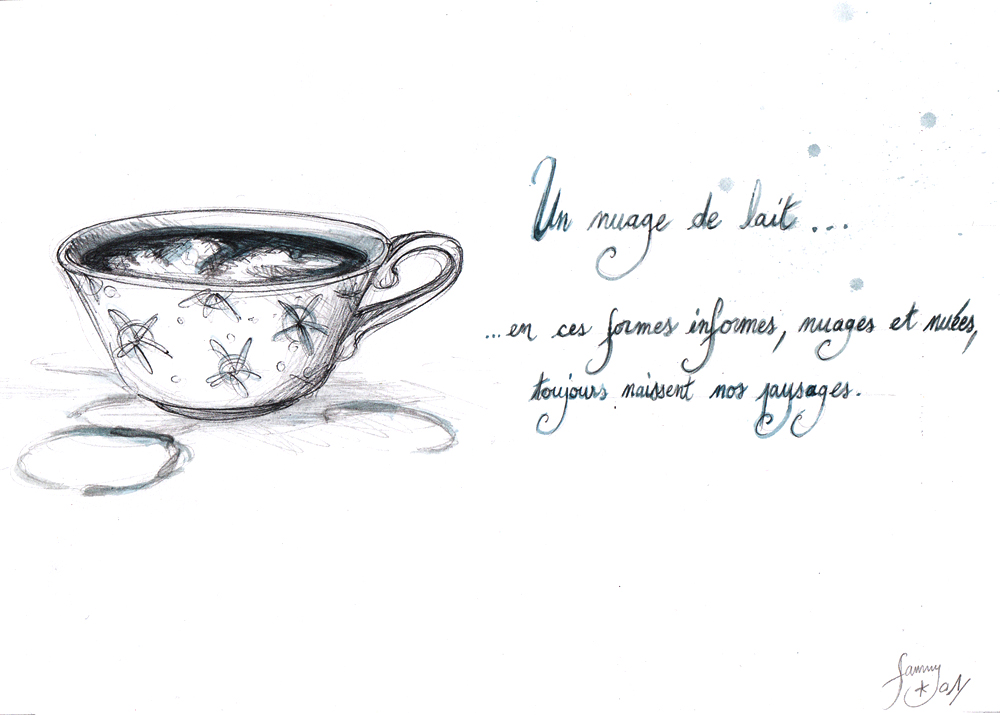 Un nuage de lait...
...en ces formes informes, nuages et nuées,
toujours naissent nos paysages.